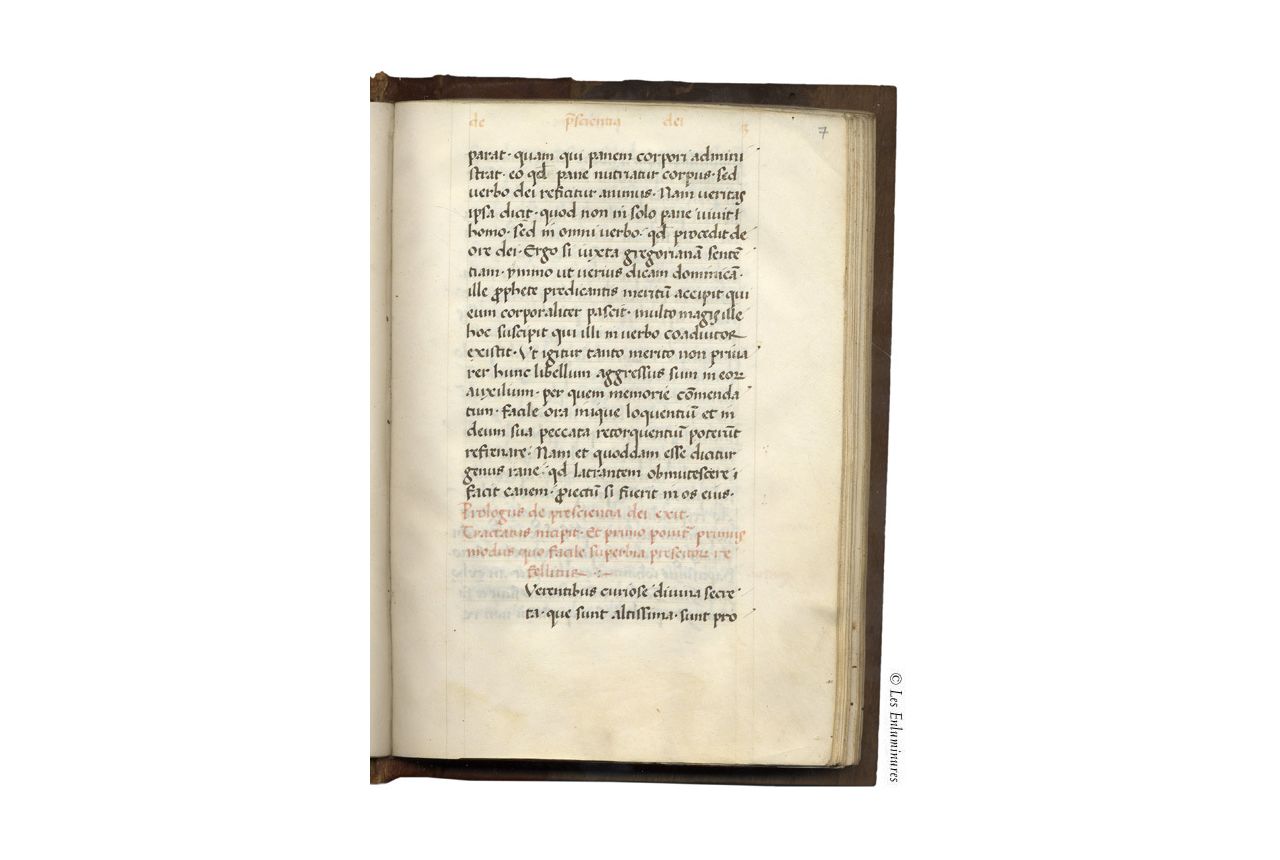 de p̄scientia dei 3
7
parat· quam qui panem corpori admini
strat· eo qđ pane nutriatur corpus· sed
verbo dei reficitur animus· Nam veritas
ipsa dicit· quod non in solo pane vivit
homo· sed in omni verbo· qđ procedit de
ore dei· Ergo si iuxta gregorianā sentē
tiam· ymmo ut verius dicam dominicā·
ille ꝓphete predicantis meritū accipit qui
eum corporaliter pascit· multo magis ille
hoc suscipit qui illi in verbo coadiutor
existit· Ut igitur tanto merito non priva
rer hunc libellum aggressus sum in eoꝝ
auxilium· per quem memorie cōmenda
tum· facile ora inique loquentiū et in
deum sua peccata retorquentiū poterūt
refrenare· Nam et quoddam esse dicitur
genus rane· qđ latrantem obmutescere
facit canem· ꝓiectū si fuerit in os eius·
Prologus de prescientia dei exit·
Tractatus incipit· Et primo ponit̄ primus
modus quo facile superbia presertoꝝ re
fellitur
Verentibus curiose divina secre
ta· que sunt altissima· sunt pro
© Les Enluminures